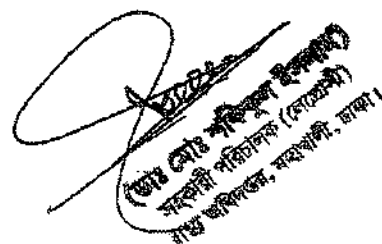 (ডাঃ মোঃ শফিকুল ইসলাম)
সহকারী পরিচালক
স্বাস্থ্য অধিদপ্তর, মহাখালী, ঢাকা।